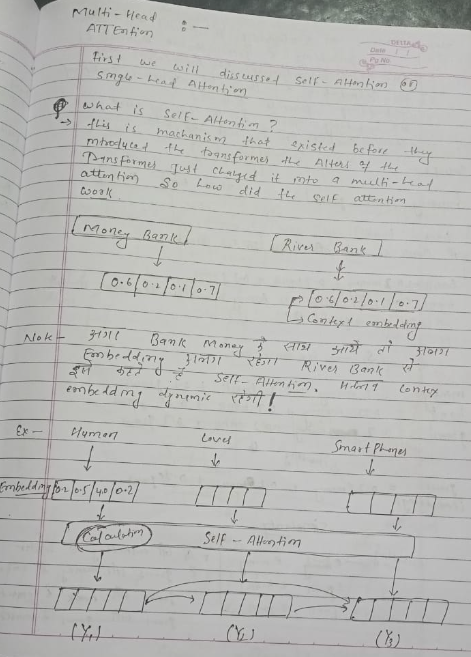 Multi-Head
ATTEntion :-
Date
Pg No
First we will discussed Self-Attention or
Single-Lead Attention
Q what is Self-Attention ?
→ this is mechanism that existed before they
introduced the transformer the Alters of the
Transformer Just changed it into a multi-head
attention So how did the self attention
work
Money Bank
River Bank
0.6 0.2 0.1 0.7
0.6 0.2 0.1 0.7
Context embedding
Note - अगर Bank Money के साथ आये तो अलग
Embedding अलग रहेगा River Bank से
इसे कहते है Self-Attention. मतलब Contex
embedding dynamic रहेगी !
Ex - Human Loves Smart Phones
Embedding 0.2 0.5 4.0 0.2
Calculation Self-Attention
(Y1) (Y2) (Y3)